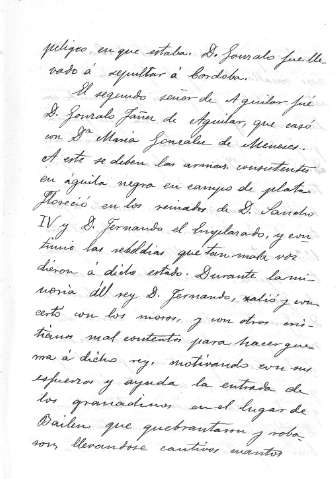 peligro, en que estaba. D. Gonzalo fue lle-
vado á sepultar á Cordoba.
El segundo señor de Aguilar fué
D. Gonzalo Yañez de Aguilar, que casó
con Dª Maria Gonzalez de Meneses.
A este se deben las armas, consistentes
en águila negra en campo de plata.
Floreció en los reinados de D. Sancho
IV y D. Fernando el Emplazado, y con-
tinuó las rebeldías que tan mala voz
dieron á dicho estado. Durante la mi-
noria del rey D. Fernando, salió y con-
certó con los moros, y con otros cris-
tianos mal contentos para hacer gue-
rra á dicho rey, motivando con sus
esfuerzos y ayuda la entrada de
los granadinos en el lugar de
Bailen que quebrantaron y roba-
ron, llevandose cautivos cuantos